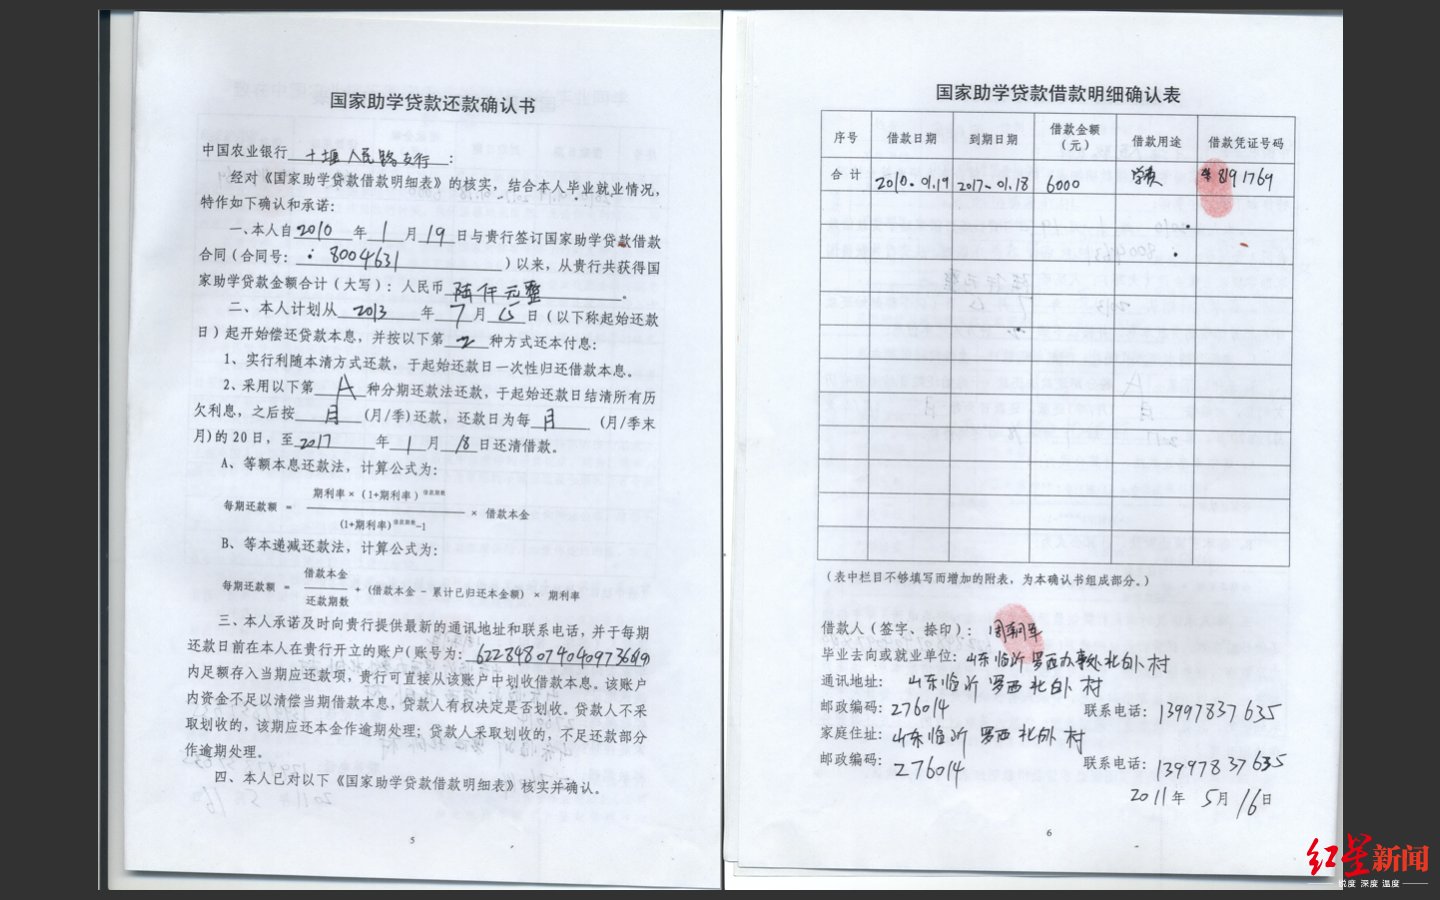 国家助学贷款还款确认书
中国农业银行 十堰人民路支行 ：
经对《国家助学贷款借款明细表》的核实，结合本人毕业就业情况，
特作如下确认和承诺：
一、本人自2010年1月19日与贵行签订国家助学贷款借款
合同（合同号：8004631）以来，从贵行共获得国
家助学贷款金额合计（大写）：人民币 陆仟元整 。
二、本人计划从 2013 年 7 月 15 日（以下称起始还款
日）起开始偿还贷款本息，并按以下第 2 种方式还本付息：
1、实行利随本清方式还款，于起始还款日一次性归还借款本息。
2、采用以下第 A 种分期还款法还款，于起始还款日结清所有历
欠利息，之后按 月 (月/季)还款，还款日为每 月 (月/季末
月)的20日，至2017年1月18日还清借款。
A、等额本息还款法，计算公式为：
每期还款额 = 期利率×（1+期利率）借款期数
(1+期利率)借款期数-1 × 借款本金
B、等本递减还款法，计算公式为：
每期还款额 = 借款本金
还款期数 +（借款本金 - 累计已归还本金额）× 期利率
三、本人承诺及时向贵行提供最新的通讯地址和联系电话，并于每期
还款日前在本人在贵行开立的账户(账号为：
内足额存入当期应还款项，贵行可直接从该账户中划收借款本息。该账户
内资金不足以清偿当期借款本息，贷款人有权决定是否划收。贷款人不采
取划收的，该期应还本金作逾期处理；贷款人采取划收的，不足还款部分
作逾期处理。
四、本人已对以下《国家助学贷款借款明细表》核实并确认。
5
国家助学贷款借款明细确认表
序号 借款日期 到期日期 借款金额（元） 借款用途 借款凭证号码
合计 2010.01.19 2017.01.18 6000 学费 8191769
（表中栏目不够填写而增加的附表，为本确认书组成部分。）
借款人（签字、捺印）：周朝军
毕业去向或就业单位：山东临沂罗西办事处北卧村
通讯地址： 山东临沂罗西北卧村
邮政编码：276014 联系电话：13997837635
家庭住址：山东临沂罗西北卧村
邮政编码：276014 联系电话：13997837635
2011年 5月 16日
6
红星新闻
锐度 深度 温度